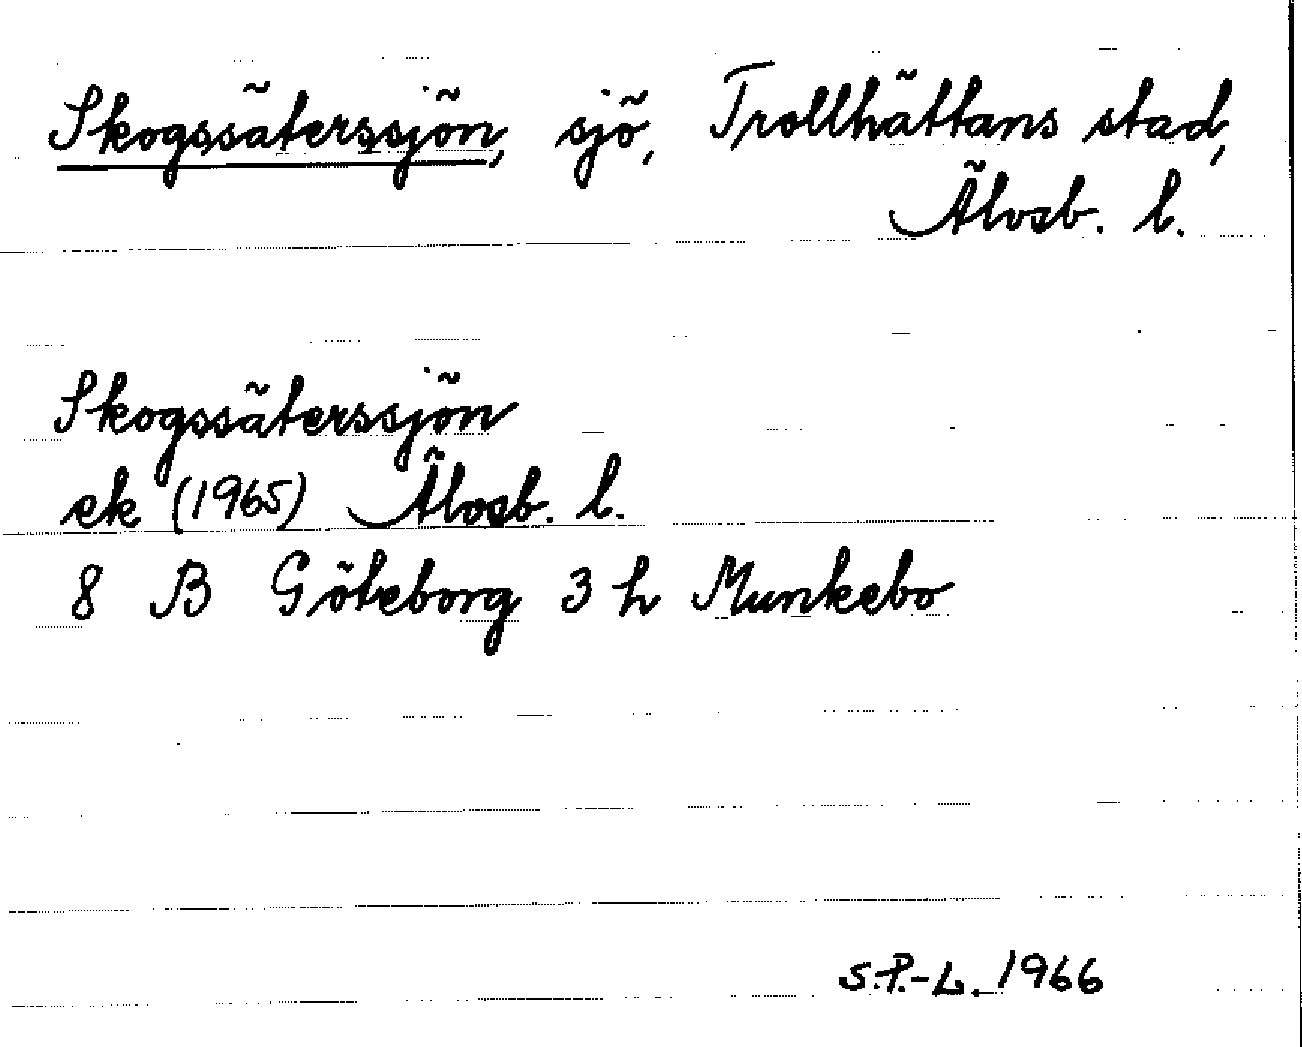 Skogssäterssjön, sjö, Trollhättans stad,
Älvsb. l.
Skogssäterssjön
ek (1965) Älvsb. l.
8 B Göteborg 3 h Munkebo
S.P.-L. 1966